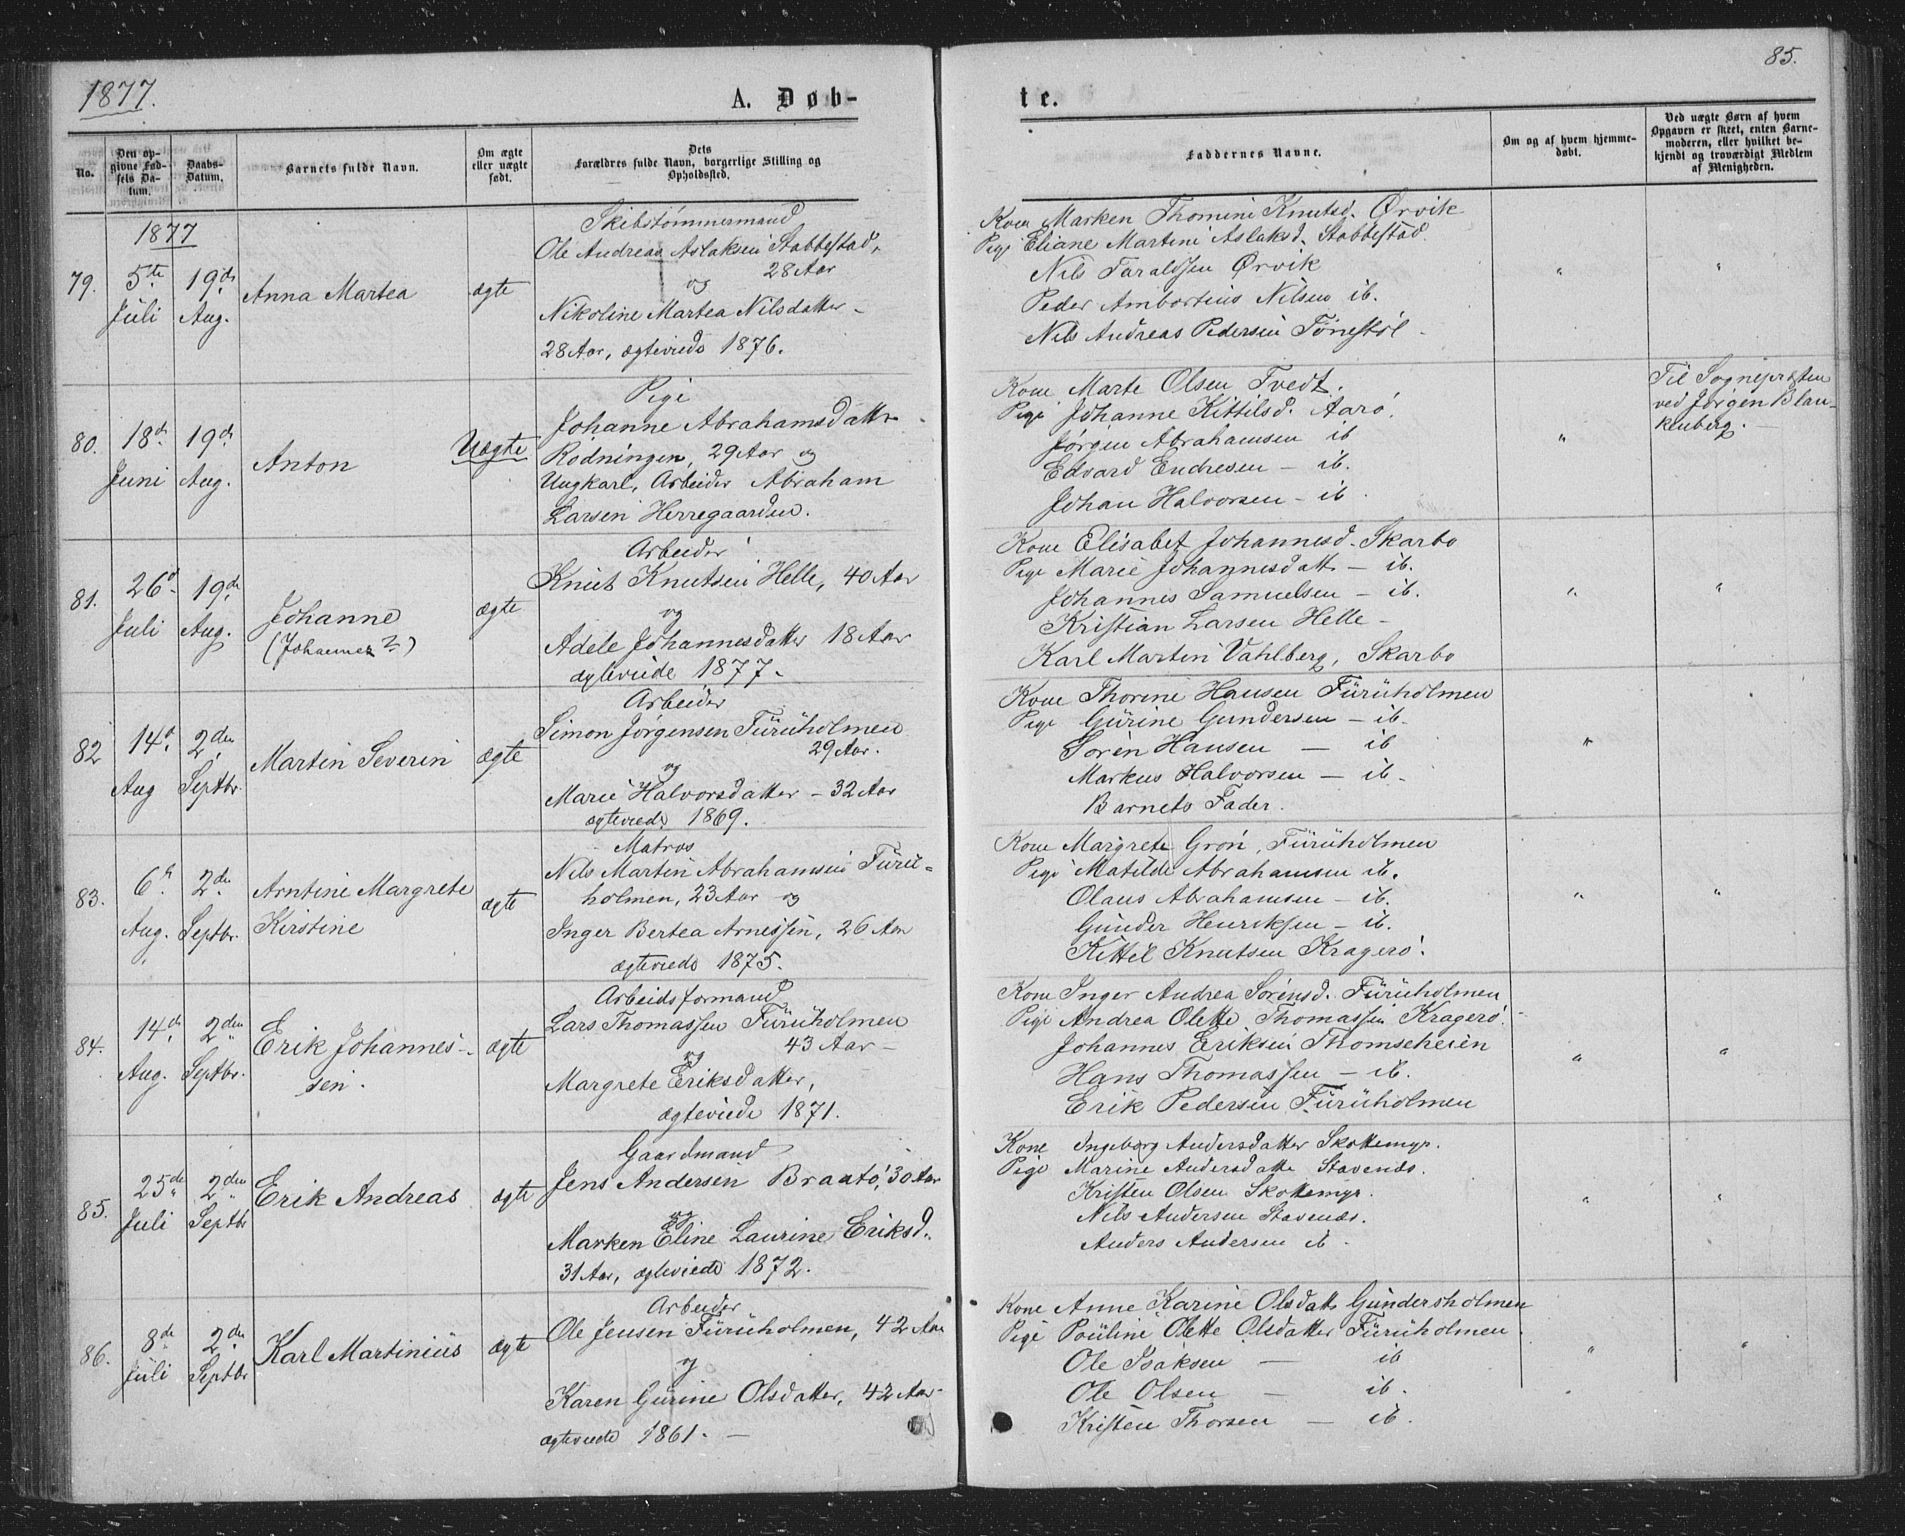 1877.
A. Døb-
No.
Den op-
givne Fød-
sels Da-
tum.
Daabs-
Datum.
Barnets fulde Navn.
Om ægte
eller uægte
født.
Dets
Forældres fulde Navn, borgerlige Stilling og
Opholdssted.
1877
79.
5te
Juli
19de
Aug.
Anna Martea
ægte
Skibstømmermand
Ole Andreas Aslaksen Stabbestad,
28 Aar
og
Nikoline Martea Nilsdatter -
28 Aar, ægteviede 1876.
80.
18de
Juni
19de
Aug.
Anton
Uægte
Pige
Johanne Abrahamsdatter
Rødningen, 29 Aar og
Ungkarl, Arbeider Abraham
Larsen Herregaarden.
81.
26de
Juli
19de
Aug.
Johanne
(Johannes?)
ægte
Arbeider
Knut Knutsen Helle, 40 Aar
og
Adele Johannesdatter 18 Aar
ægteviede 1877.
82
14de
Aug
2den
Septbr.
Martin Severin
ægte
Arbeider
Simon Jørgensen Furuholmen
29 Aar.
og
Marie Halvorsdatter - 32 Aar
ægteviede 1869.
83.
6te
Aug.
2den
Septbr.
Arntine Margrete
Kirstine
ægte
Matros
Nils Martin Abrahamsen Furu-
holmen, 23 Aar og
Inger Bertea Arnessen, 26 Aar
ægteviede 1875.
84.
14de
Aug.
2den
Septbr.
Erik Johannes-
sen.
ægte
Arbeidsformand
Lars Thomassen Furuholmen
43 Aar -
og
Margrete Eriksdatter,
ægteviede 1871.
85.
25de
Juli
2den
Septbr
Erik Andreas
ægte
Gaardmand
Jens Andersen Braatø, 30 Aar
og
Marken Eline Laurine Eriksd.
31 Aar, ægteviede 1872.
86.
8de
Juli
2den
Septbr
Karl Martinius
ægte
Arbeider
Ole Jensen Furuholmen, 42 Aar
og
Karen Gurine Olsdatter, 42 Aar-
ægteviede 1861. -
85.
te.
Faddernes Navne.
Om og af hvem hjemme-
døbt.
Ved uægte Børn af hvem
Opgaven er skeet, enten Barne-
moderen, eller hvilket be-
kjendt og troværdigt Medlem
af Menigheden.
Kone Marken Thomine Knutsd. Ørvik
Pige Eliane Martine Aslaksd. Stabbestad.
Nils Taraldsen Ørvik
Peder Ambortius Nilsen ib.
Nils Andreas Pedersen Tønestøl
" "
Kone Marte Olsen Tvedt.
Pige Johanne Kittilsd. Aarø.
Jørgen Abrahamsen ib
Edvard Endresen - ib.
Johan Halvorsen - ib
"
Til Sognepræsten
ved Jørgen Blan-
kenberg. -
Kone Elisabet Johannesd. Skarbo
Pige Marie Johannesdatt - ib.
Johannes Samuelsen - ib.
Kristian Larsen Helle -
Karl Martin Vahlberg, Skarbo
" "
Kone Thorine Hansen Furuholmen
Pige Gurine Gundersen - ib.
Søren Hansen - ib
Markus Halvorsen - ib.
Barnets Fader.
" "
Kone Margrete Grøn, Furuholmen
Pige Matilde Abrahamsen ib.
Olaus Abrahamsen - ib.
Gunder Henriksen - ib.
Kittil Knutsen Kragerø.
" "
Kone Inger Andrea Sørensd. Furuholmen
Pige Andrea Olette Thomassen Kragerø.
Johannes Eriksen Thomseheien
Hans Thomassen - ib.
Erik Pedersen Furuholmen
" "
Kone Ingeborg Andersdatter Skottemyr.
Pige Marine Andersdatter Stavenæs.
Kristen Olsen Skottemyr.
Nils Andersen Stavenæs.
Anders Andersen ib.
" "
Kone Anne Karine Olsdatt Gundersholmen
Pige Pouline Olette Olsdatter Furuholmen
Ole Isaksen - ib
Ole Olsen - ib.
Kristen Thorsen - ib.
" "